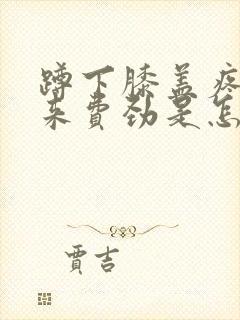 蹲下膝盖疼
来费劲是怎
贾吉